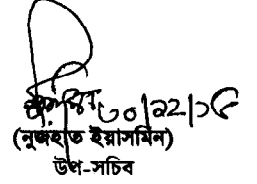 ৩০/১২/১৫
(নুজহাত ইয়াসমিন)
উপ-সচিব